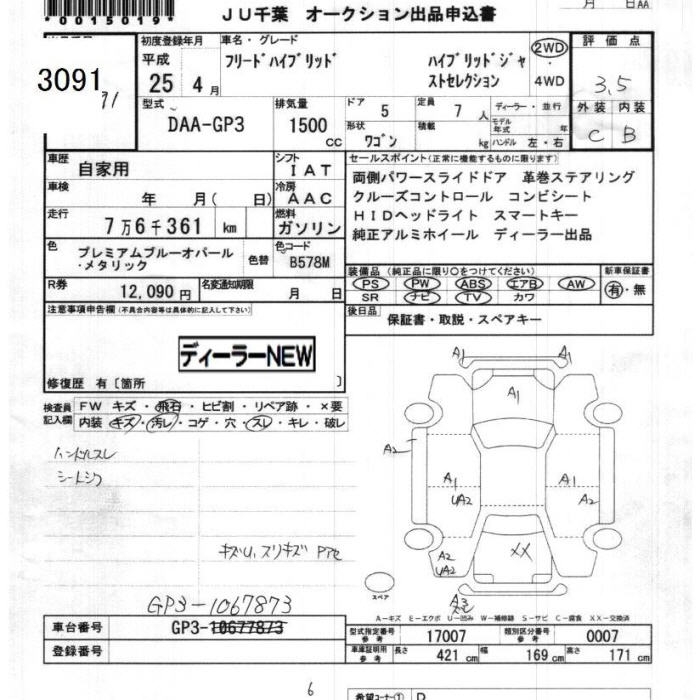 *0015019*
JU千葉 オークション出品申込書
月 日AA
初度登録年月
車名・グレード
評価点
3091
71
平成
25 4 月
フリードハイブリッド
ハイブリッドジャ
ストセレクション
2WD
・
4WD
3.5
型式
DAA-GP3
排気量
1500
cc
ドア
5
定員
7 人
ディーラー・並行
モデル年式 年
形状
ワゴン
積載
kg
ハンドル 左・右
外装 内装
C B
車歴
自家用
シフト
IAT
セールスポイント(正常に機能するものに限ります)
両側パワースライドドア 革巻ステアリング
クルーズコントロール コンビシート
HIDヘッドライト スマートキー
純正アルミホイール ディーラー出品
車検
年 月( 日)
冷房
AAC
走行
7万6千361 km
燃料
ガソリン
色
プレミアムブルーオパール
・メタリック
色替
色コード
B578M
装備品(純正品に限り○をつけてください)
PS PW ABS エアB AW
SR ナビ TV カワ
新車保証書
有・無
R券
12,090 円
名変通知期限
月 日
後日品
保証書・取説・スペアキー
注意事項申告欄(不具合内容等は具体的に記入して下さい)
ディーラーNEW
修復歴 有〔箇所 〕
検査員
記入欄
FW キズ・飛石・ヒビ割・リペア跡・×要
内装 キズ・汚レ・コゲ・穴・スレ・キレ・破レ
ハンドルスレ
シートシワ
キズU、スリキズ
A1 A1
A1
A2
A1
UA2
A1
A2
A2
UA2
XX
スペア
A3
GP3-1067873
A－キズ E－エクボ U－凹み W－補修跡 S－サビ C－腐食 XX－交換済
車台番号
GP3-10677873
型式指定番号
参考
17007
類別区分番号
参考
0007
登録番号
車庫証明用
参考
長さ
421 cm
幅
169 cm
高さ
171 cm
6
希望コーナー① D